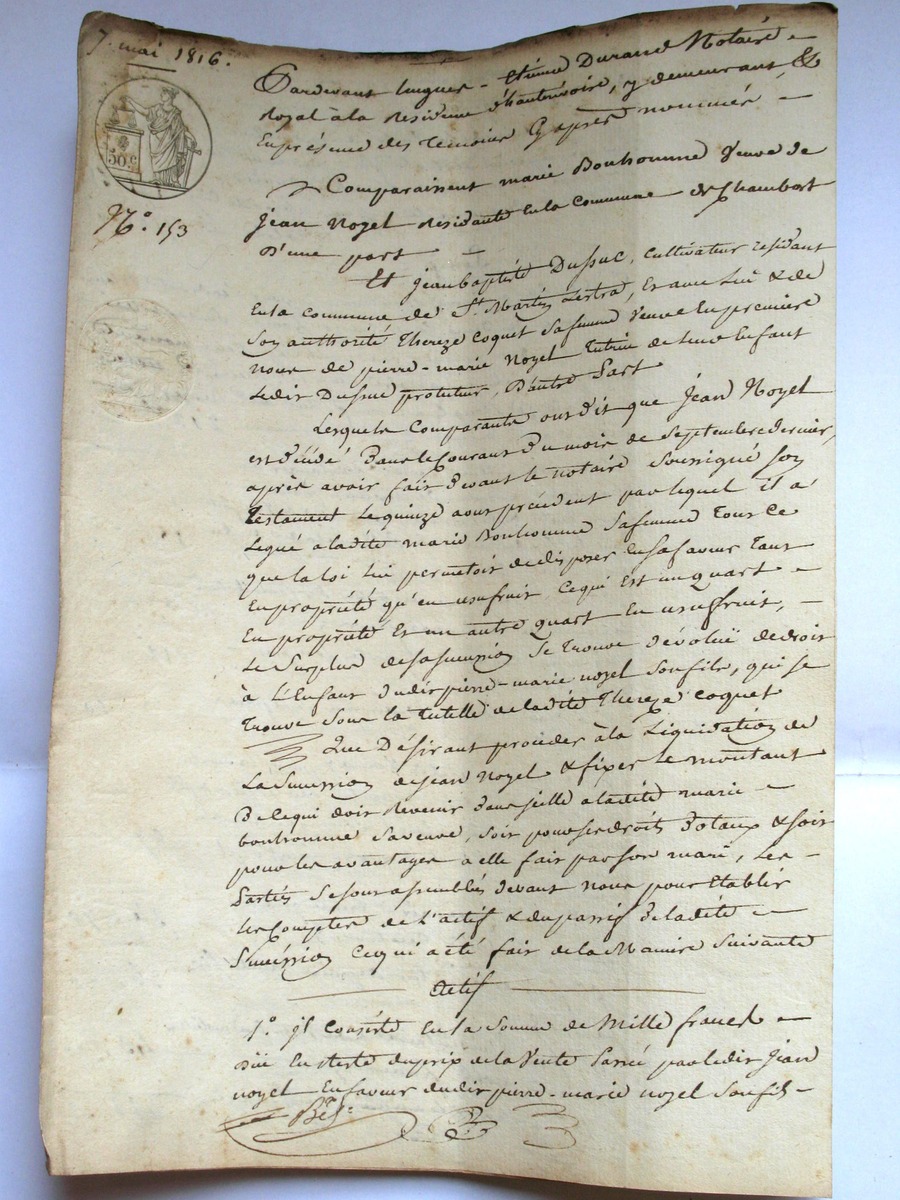 7. mai 1816.
50 c
N.o 153
Pardevant hugues - Etienne Durand Notaire
Royal à la Residence d'hauterivoire, y demeurant, &
En présence des temoins Cy après nommés -
Comparaissent marie Bonhomme Veuve de
Jean Noyel Residante En la Commune de Chambost
D'une part -
Et jean baptiste Dussuc, Cultivateur residant
En la Commune de St. Martin Lestra, Et avec lui & de
Son authorité Thereze Coquet Sa femme Veuve En premiere
noces de pierre-marie Noyel tutrice de leur Enfant
Ledit Dussuc protuteur, D'autre Part
Lesquels Comparants ont dit que Jean Noyel
est décédé Dans le Courant Du mois de Septembre dernier,
après avoir fait devant le notaire Soussigné Son
testament le quinze aout précédent par lequel il a
Legué a ladite marie Bonhomme Sa femme Tout Ce
que la loi lui permetoit de disposer En sa faveur Tant
En propriété qu'en usufruit Ce qui Est un quart -
En propriété Et un autre quart En usuffruit, -
Le Surplus de sa succession Se trouve dévolüe de droit
à L'Enfant dudit pierre-marie noyel Son fils, qui se
trouve Sous la tutelle de ladite Thereze Coquet
Que Désirant proceder à la Liquidation de
La Succession de jean Noyel & fixer le montant
De Ce qui doit Revenir Dans jcelle a ladite marie -
bonhomme Sa veuve, Soit pour ses droits Dotaux & Soit
pour les avantages a elle fait par Son mari, Les -
Parties Se sont assemblés devant nous pour Etablir
les Comptes de L'actif & du passif De ladite -
Succéssion Ce qui a été fait de la Maniere Suivante
Actif
1.o jl Consiste En la Somme de Mille francs -
Düe En Reste du prix de la Vente Passée par ledit Jean
noyel En faveur dudit pierre-marie noyel Son fils -